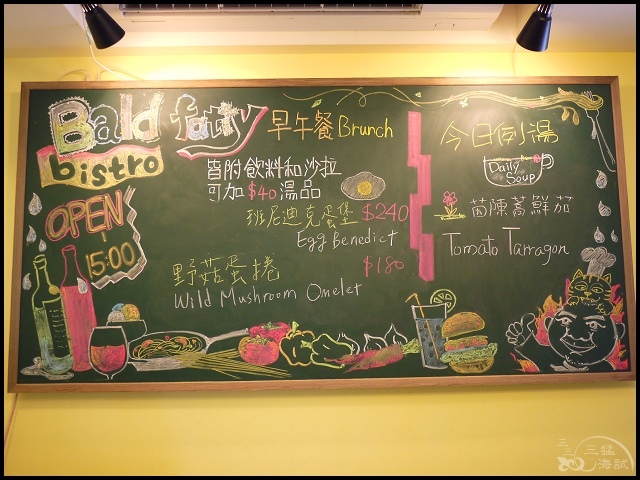 Bald fatty
bistro
OPEN
15:00
早午餐 Brunch
皆附飲料和沙拉
可加 $40 湯品
班尼迪克蛋堡 $240
Egg Benedict
野菇蛋捲 $180
Wild Mushroom Omelet
今日例湯
Daily Soup
茵陳蒿鮮茄
Tomato Tarragon
三猛
海試